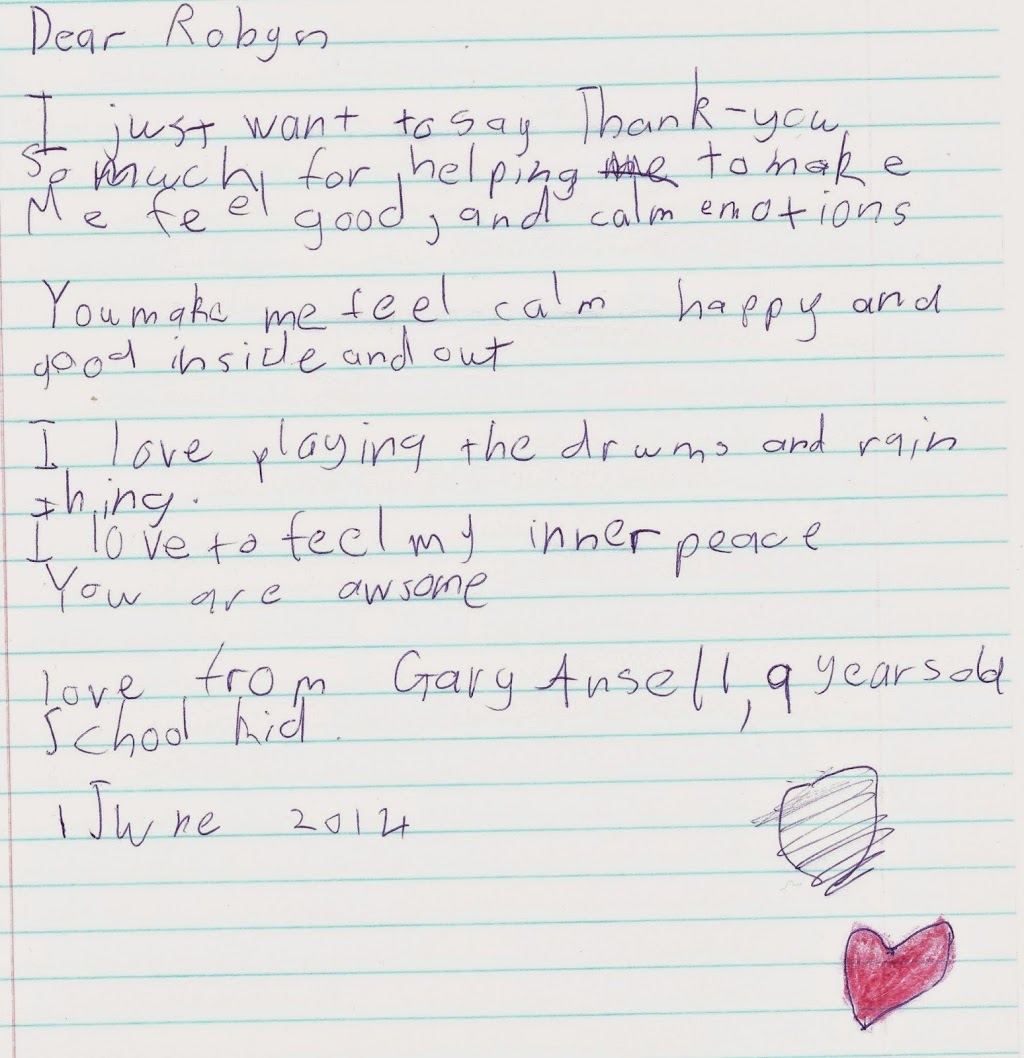 Dear Robyn
I just want to say Thank-you
So much, for helping to make
Me feel good, and calm emotions
You make me feel calm happy and
good inside and out
I love playing the drums and rain
thing.
I love to feel my inner peace
You are awsome
love from Gary Ansell, 9 years old
School kid.
1 June 2014